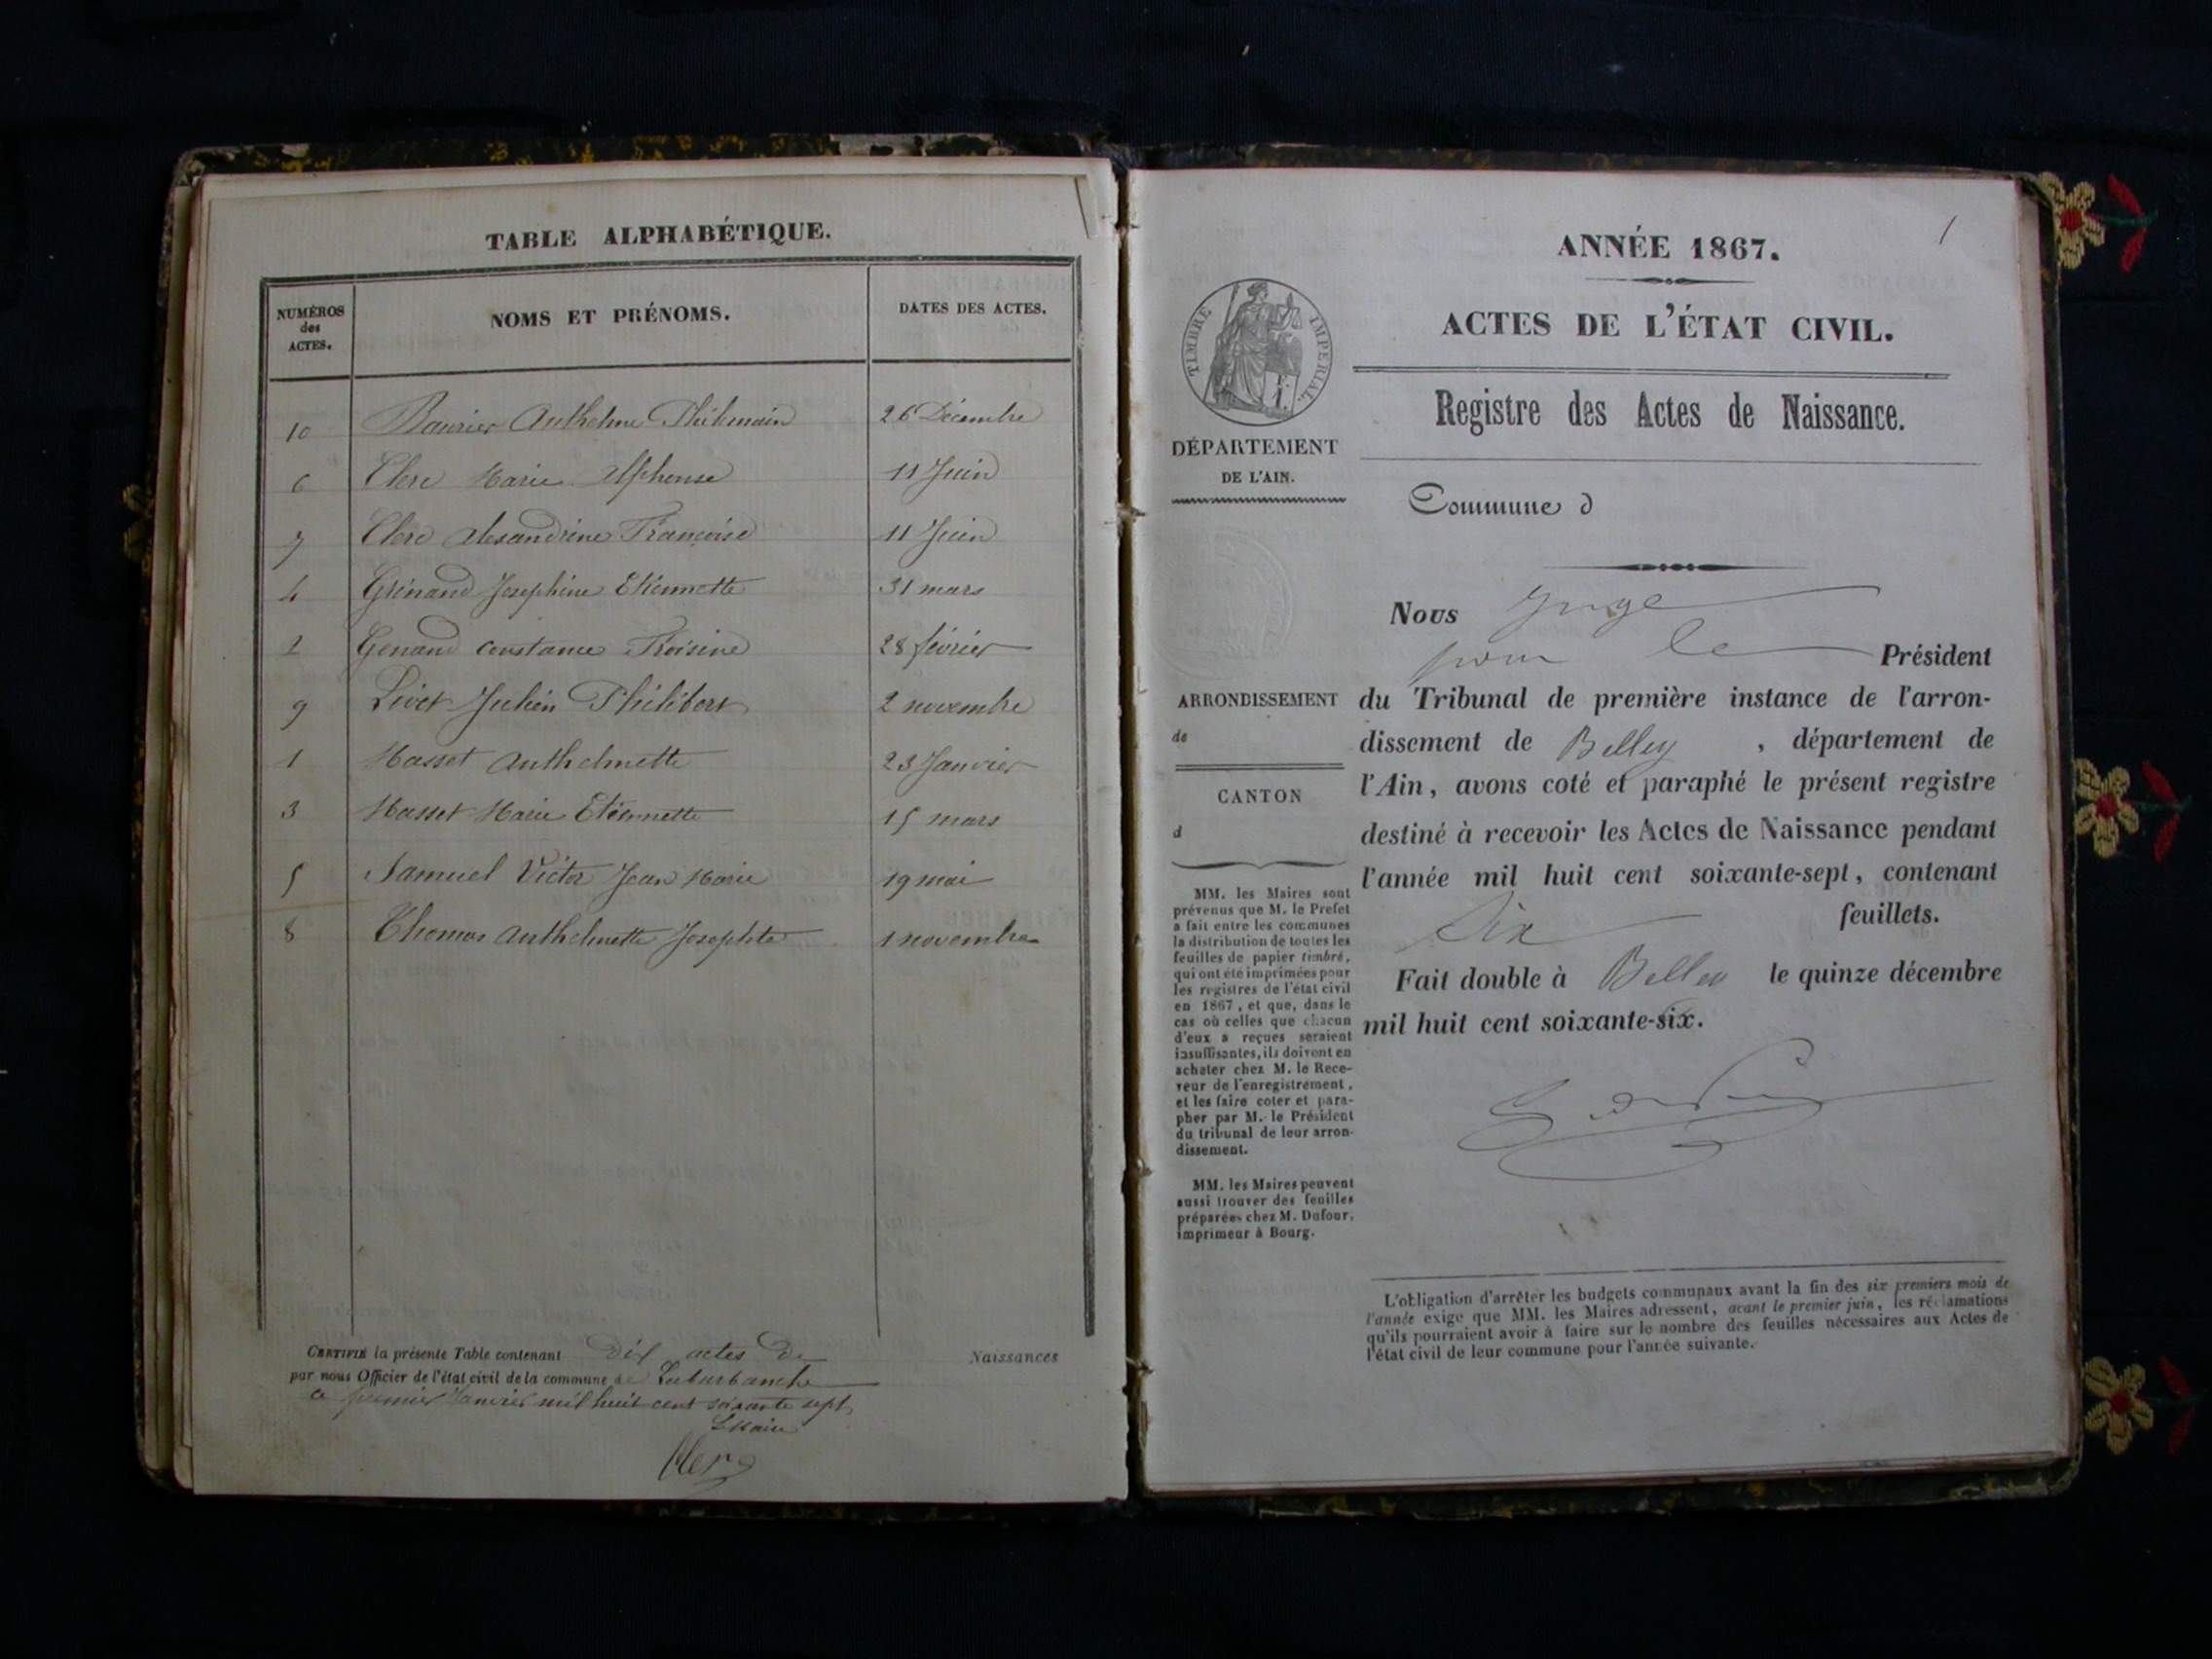 TABLE ALPHABÉTIQUE.
NUMÉROS des ACTES.
NOMS ET PRÉNOMS.
DATES DES ACTES.
10 Anthelme 26 Décembre
6 Clerc Marie Alphonse 11 Juin
7 Clerc Alexandrine Françoise 11 Juin
4 Grinand Joséphine Etiennette 31 mars
2 Genand Constance 28 février
9 Livet Julien Philibert 2 novembre
1 Masset Anthelmette 23 Janvier
3 Masset Marie Etiennette 15 mars
5 Samuel Victor Jean Marie 19 mai
8 Thomas Anthelmette Josephte 1 novembre
CERTIFIÉ la présente Table contenant dix actes de Naissances
par nous Officier de l'état civil de la commune de
ce premier Janvier mil huit cent soixante sept
Le Maire
Clerc
1
ANNÉE 1867.
ACTES DE L'ÉTAT CIVIL.
TIMBRE IMPÉRIAL.
Registre des Actes de Naissance.
DÉPARTEMENT
DE L'AIN.
Commune d
Nous Juge
pour le Président
du Tribunal de première instance de l'arron-
dissement de Belley , département de
l'Ain, avons coté et paraphé le présent registre
destiné à recevoir les Actes de Naissance pendant
l'année mil huit cent soixante-sept, contenant
six feuillets.
Fait double à Belley le quinze décembre
mil huit cent soixante-six.
ARRONDISSEMENT
de
CANTON
d
MM. les Maires sont
prévenus que M. le Préfet
a fait entre les communes
la distribution de toutes les
feuilles de papier timbré,
qui ont été imprimées pour
les registres de l'état civil
en 1867, et que, dans le
cas où celles que chacun
d'eux a reçues seraient
insuffisantes, ils doivent en
acheter chez M. le Rece-
veur de l'enregistrement,
et les faire coter et para-
pher par M. le Président
du tribunal de leur arron-
dissement.
MM. les Maires peuvent
aussi trouver des feuilles
préparées chez M. Dufour,
imprimeur à Bourg.
L'obligation d'arrêter les budgets communaux avant la fin des six premiers mois de
l'année exige que MM. les Maires adressent, avant le premier juin, les réclamations
qu'ils pourraient avoir à faire sur le nombre des feuilles nécessaires aux Actes de
l'état civil de leur commune pour l'année suivante.